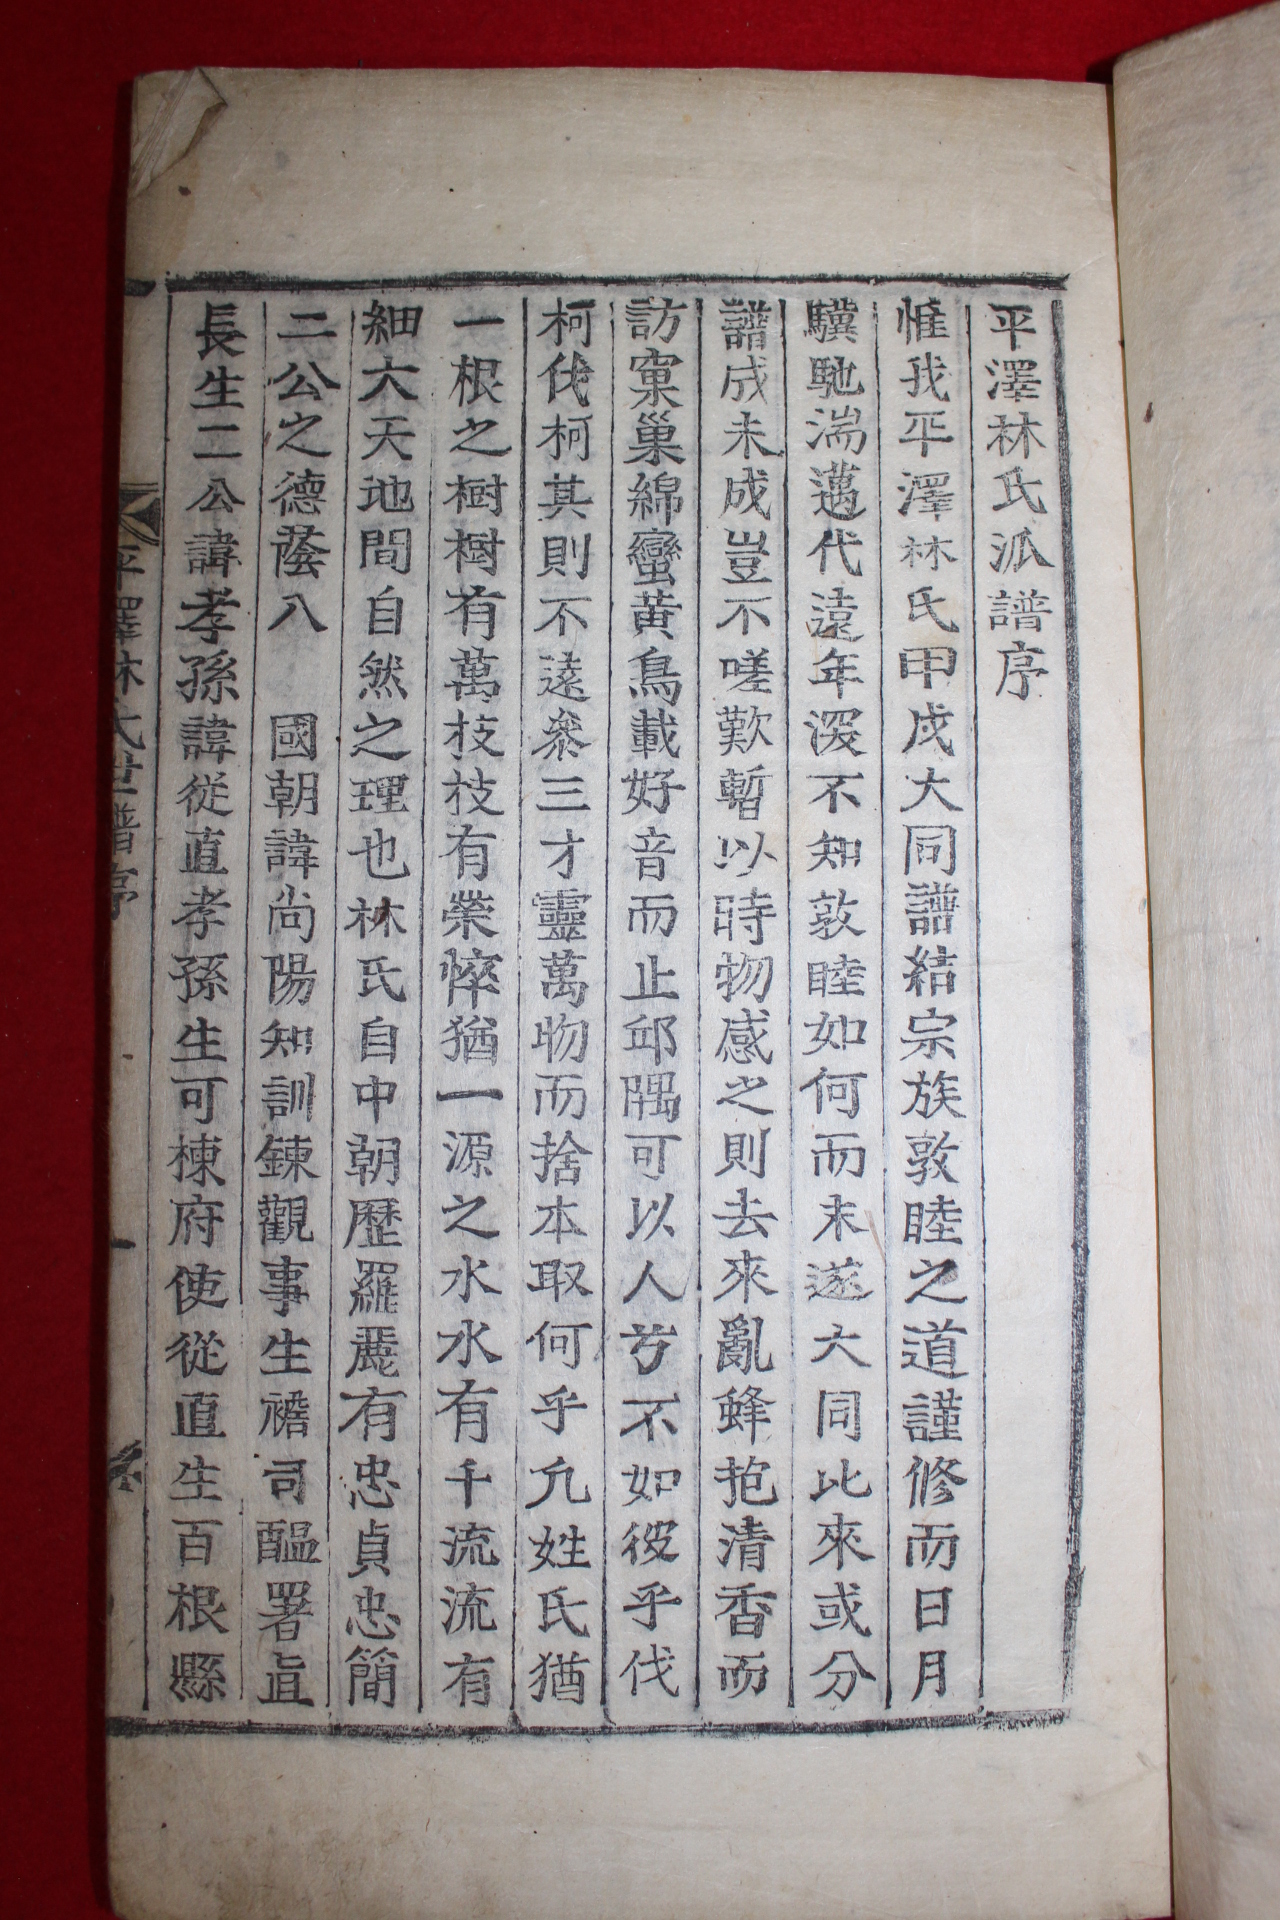 平澤林氏派譜序
惟我平澤林氏甲戌大同譜結宗族敦睦之道謹修而日月
驥馳湍邁代遠年深不知敦睦如何而未遂大同比來或分
譜成未成豈不嗟歎暫以時物感之則去來亂蜂抱清香而
訪窠巢綿蠻黃鳥載好音而止邱隅可以人兮不如彼乎伐
柯伐柯其則不遠參三才靈萬物而捨本取何乎凡姓氏猶
一根之樹樹有萬枝枝有榮悴猶一源之水水有千流流有
細大天地間自然之理也林氏自中朝歷羅麗有忠貞忠簡
二公之德蔭入　國朝諱尚陽知訓鍊觀事生襜司醞署直
長生二公諱孝孫諱從直孝孫生可棟府使從直生百根縣
平澤林氏世譜序
一